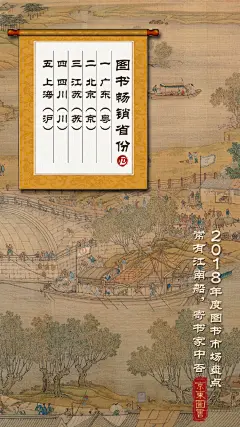 图书畅销省份
B
一 广东（粤）
二 北京（京）
三 江苏（苏）
四 四川（川）
五 上海（沪）
2018年度图书市场盘点
常有江南船，寄书家中否
京東圖書